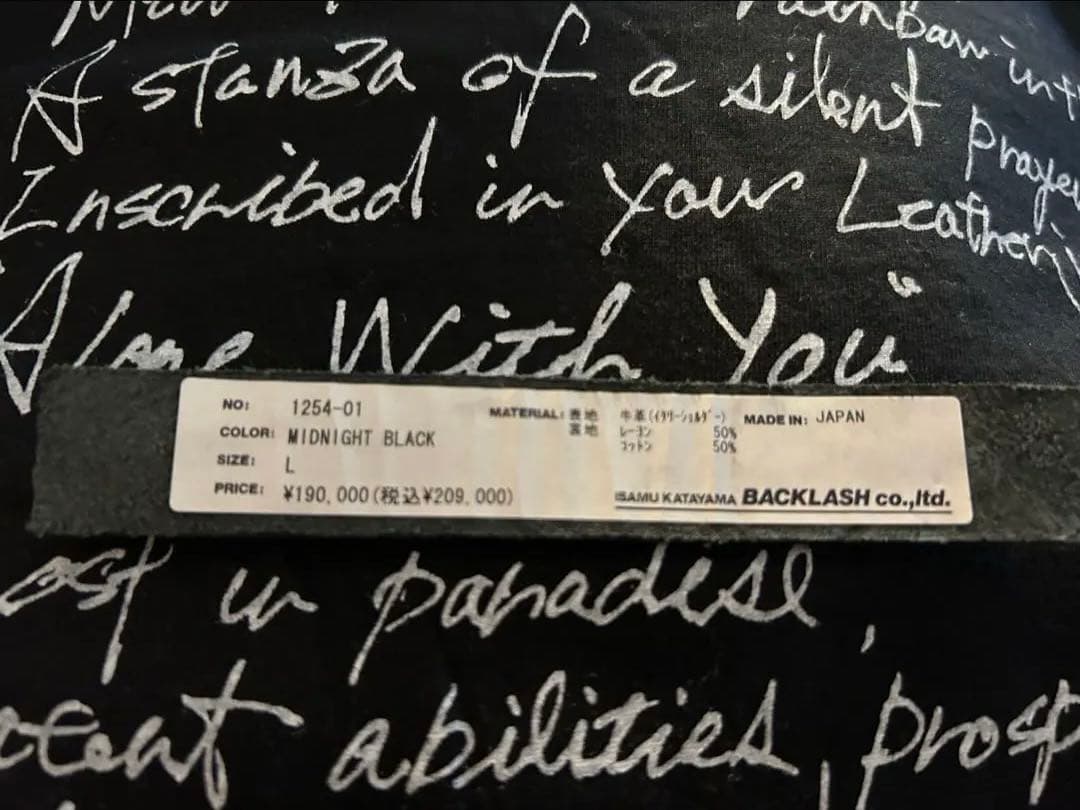 A stanza of a silent prayer
Inscribed in your Leather
Alone With You"
NO: 1254-01
COLOR: MIDNIGHT BLACK
SIZE: L
PRICE: ¥190,000(税込¥209,000)
MATERIAL: 表地 牛革(イタリーショルダー)
裏地 レーヨン 50%
コットン 50%
MADE IN: JAPAN
ISAMU KATAYAMA BACKLASH co.,ltd.
in paradise,
abilities, prosp